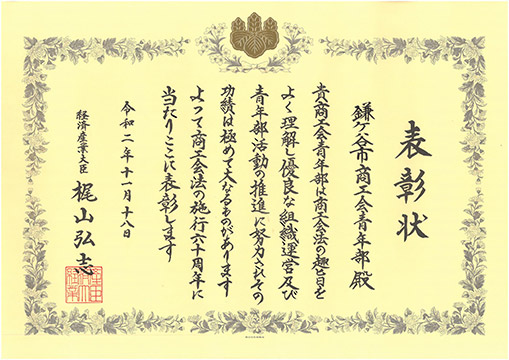 表彰状
鎌ヶ谷市商工会青年部殿
貴商工会青年部は商工会法の趣旨を
よく理解し優良な組織運営及び
青年部活動の推進に努力されその
功績は極めて大なるものがあります
よって商工会法の施行六十周年に
当たりここに表彰します
令和二年十一月十八日
経済産業大臣 梶山弘志